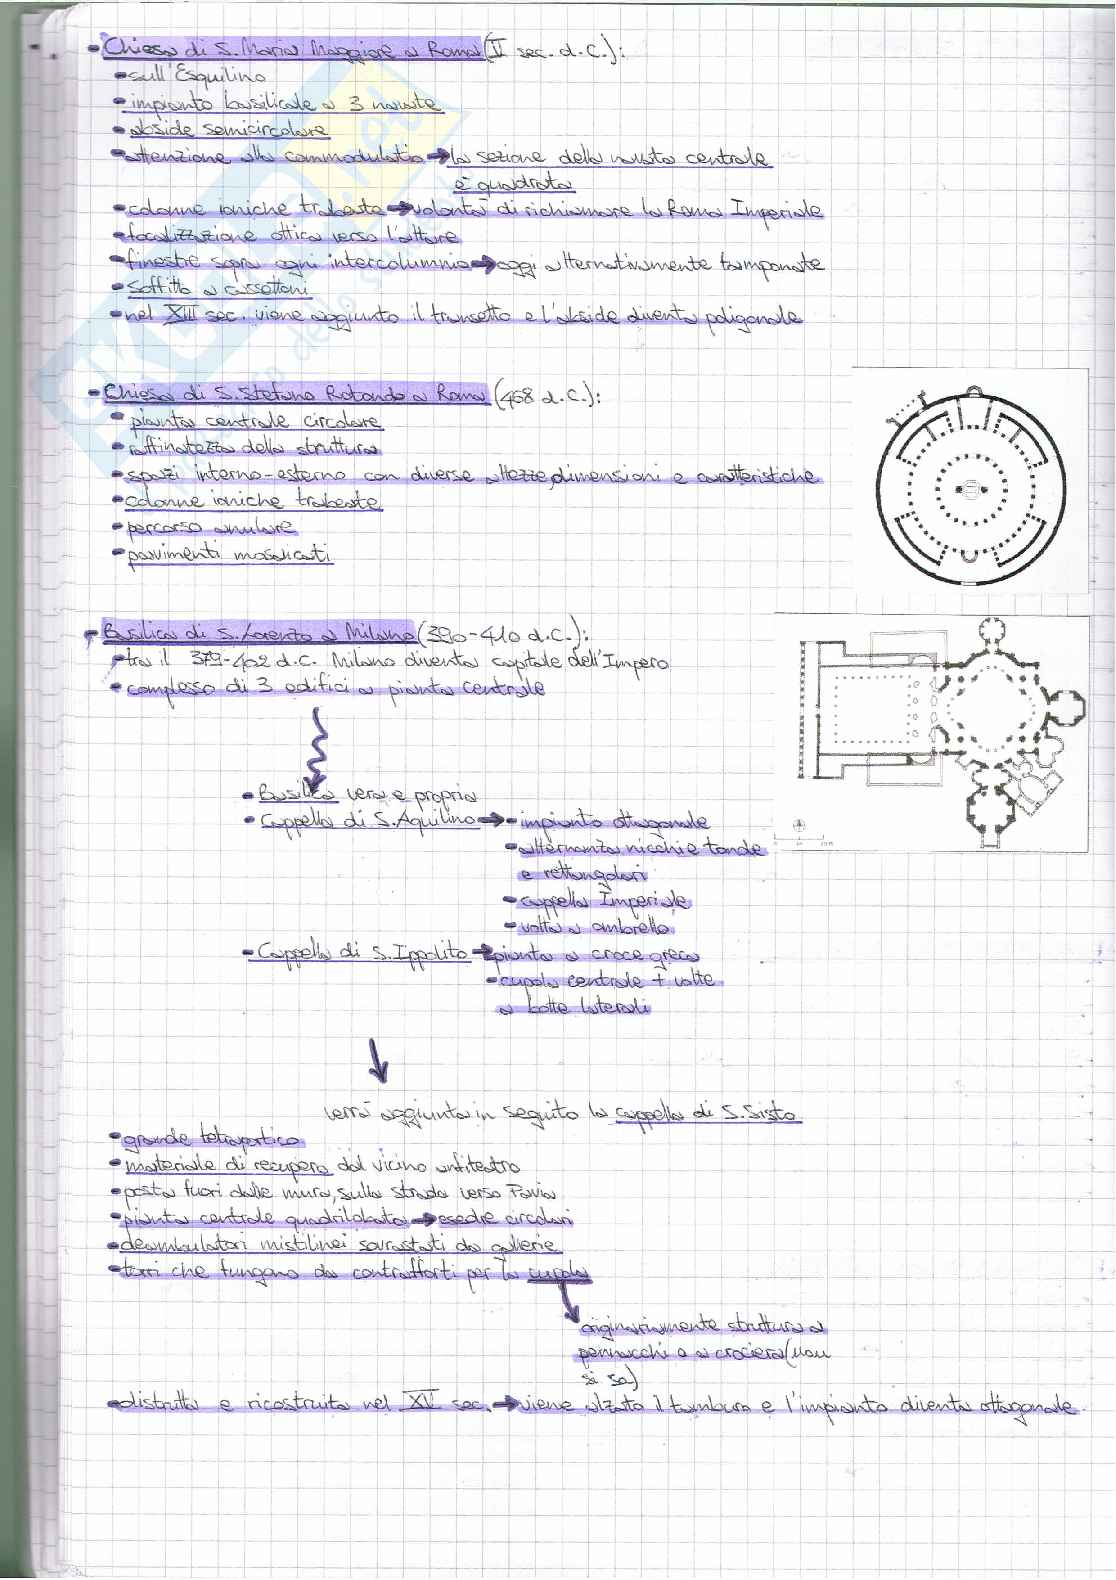 - Chiesa di S. Maria Maggiore a Roma (II sec. d.C.):
- sull'Esquilino
- impianto basilicale a 3 navate
- abside semicircolare
- attenzione alla commodulatio → la sezione della navata centrale
è quadrata
- colonne ioniche trabeate → volontà di richiamare la Roma Imperiale
- focalizzazione ottica verso l'altare
- finestre sopra ogni intercolumnio → oggi alternativamente tamponate
- soffitto a cassettoni
- nel XIII sec. viene aggiunto il transetto e l'abside diventa poligonale
- Chiesa di S. Stefano Rotondo a Roma (468 d.C.):
- pianta centrale circolare
- raffinatezza della struttura
- spazi interno-esterno con diverse altezze, dimensioni e caratteristiche
- colonne ioniche trabeate
- percorso anulare
- pavimenti mosaicati
- Basilica di S. Lorenzo a Milano (390-410 d.C.):
- tra il 379-402 d.C. Milano diventa capitale dell'Impero
- complesso di 3 edifici a pianta centrale
- Basilica vera e propria
- Cappella di S. Aquilino → - impianto ottagonale
- alternanza nicchie tonde
e rettangolari
- cappella Imperiale
- volta a ombrello
- Cappella di S. Ippolito → pianta a croce greca
- cupola centrale + volte
a botte laterali
verrà aggiunta in seguito la cappella di S. Sisto
- grande tetraportico
- materiale di recupero dal vicino anfiteatro
- posta fuori dalle mura, sulla strada verso Pavia
- pianta centrale quadrilobata → esedre circolari
- deambulatori mistilinei sovrastati da gallerie
- torri che fungono da contrafforti per la cupola
originariamente struttura a
pennacchi o a crociera (non
si sa)
- distrutta e ricostruita nel XVI sec. → viene alzato il tamburo e l'impianto diventa ottagonale.